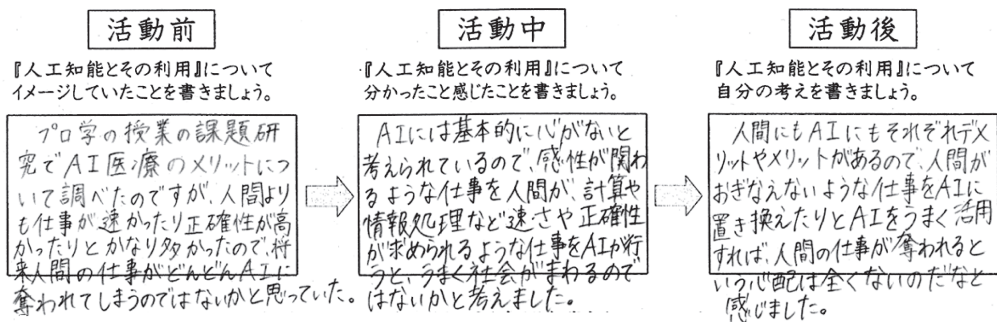 活動前
『人工知能とその利用』について
イメージしていたことを書きましょう。
プロ学の授業の課題研
究でAI医療のメリットについ
いて調べたのですが、人間より
も仕事が速かったり正確性が高
かったりとかなり多かったので、将
来人間の仕事がどんどんAIに
奪われてしまうのではないかと思っていた。
活動中
『人工知能とその利用』について
分かったこと感じたことを書きましょう。
AIには基本的に心がないと
考えられているので、感性が関わ
るような仕事を人間が、計算や
情報処理など速さや正確性
が求められるような仕事をAIが行
うと、うまく社会がまわるので
はないかと考えました。
活動後
『人工知能とその利用』について
自分の考えを書きましょう。
人間にもAIにもそれぞれデメ
リットやメリットがあるので、人間が
おぎなえないような仕事をAIに
置き換えたりとAIをうまく活用
すれば、人間の仕事が奪われると
いう心配は全くないのだなと
感じました。